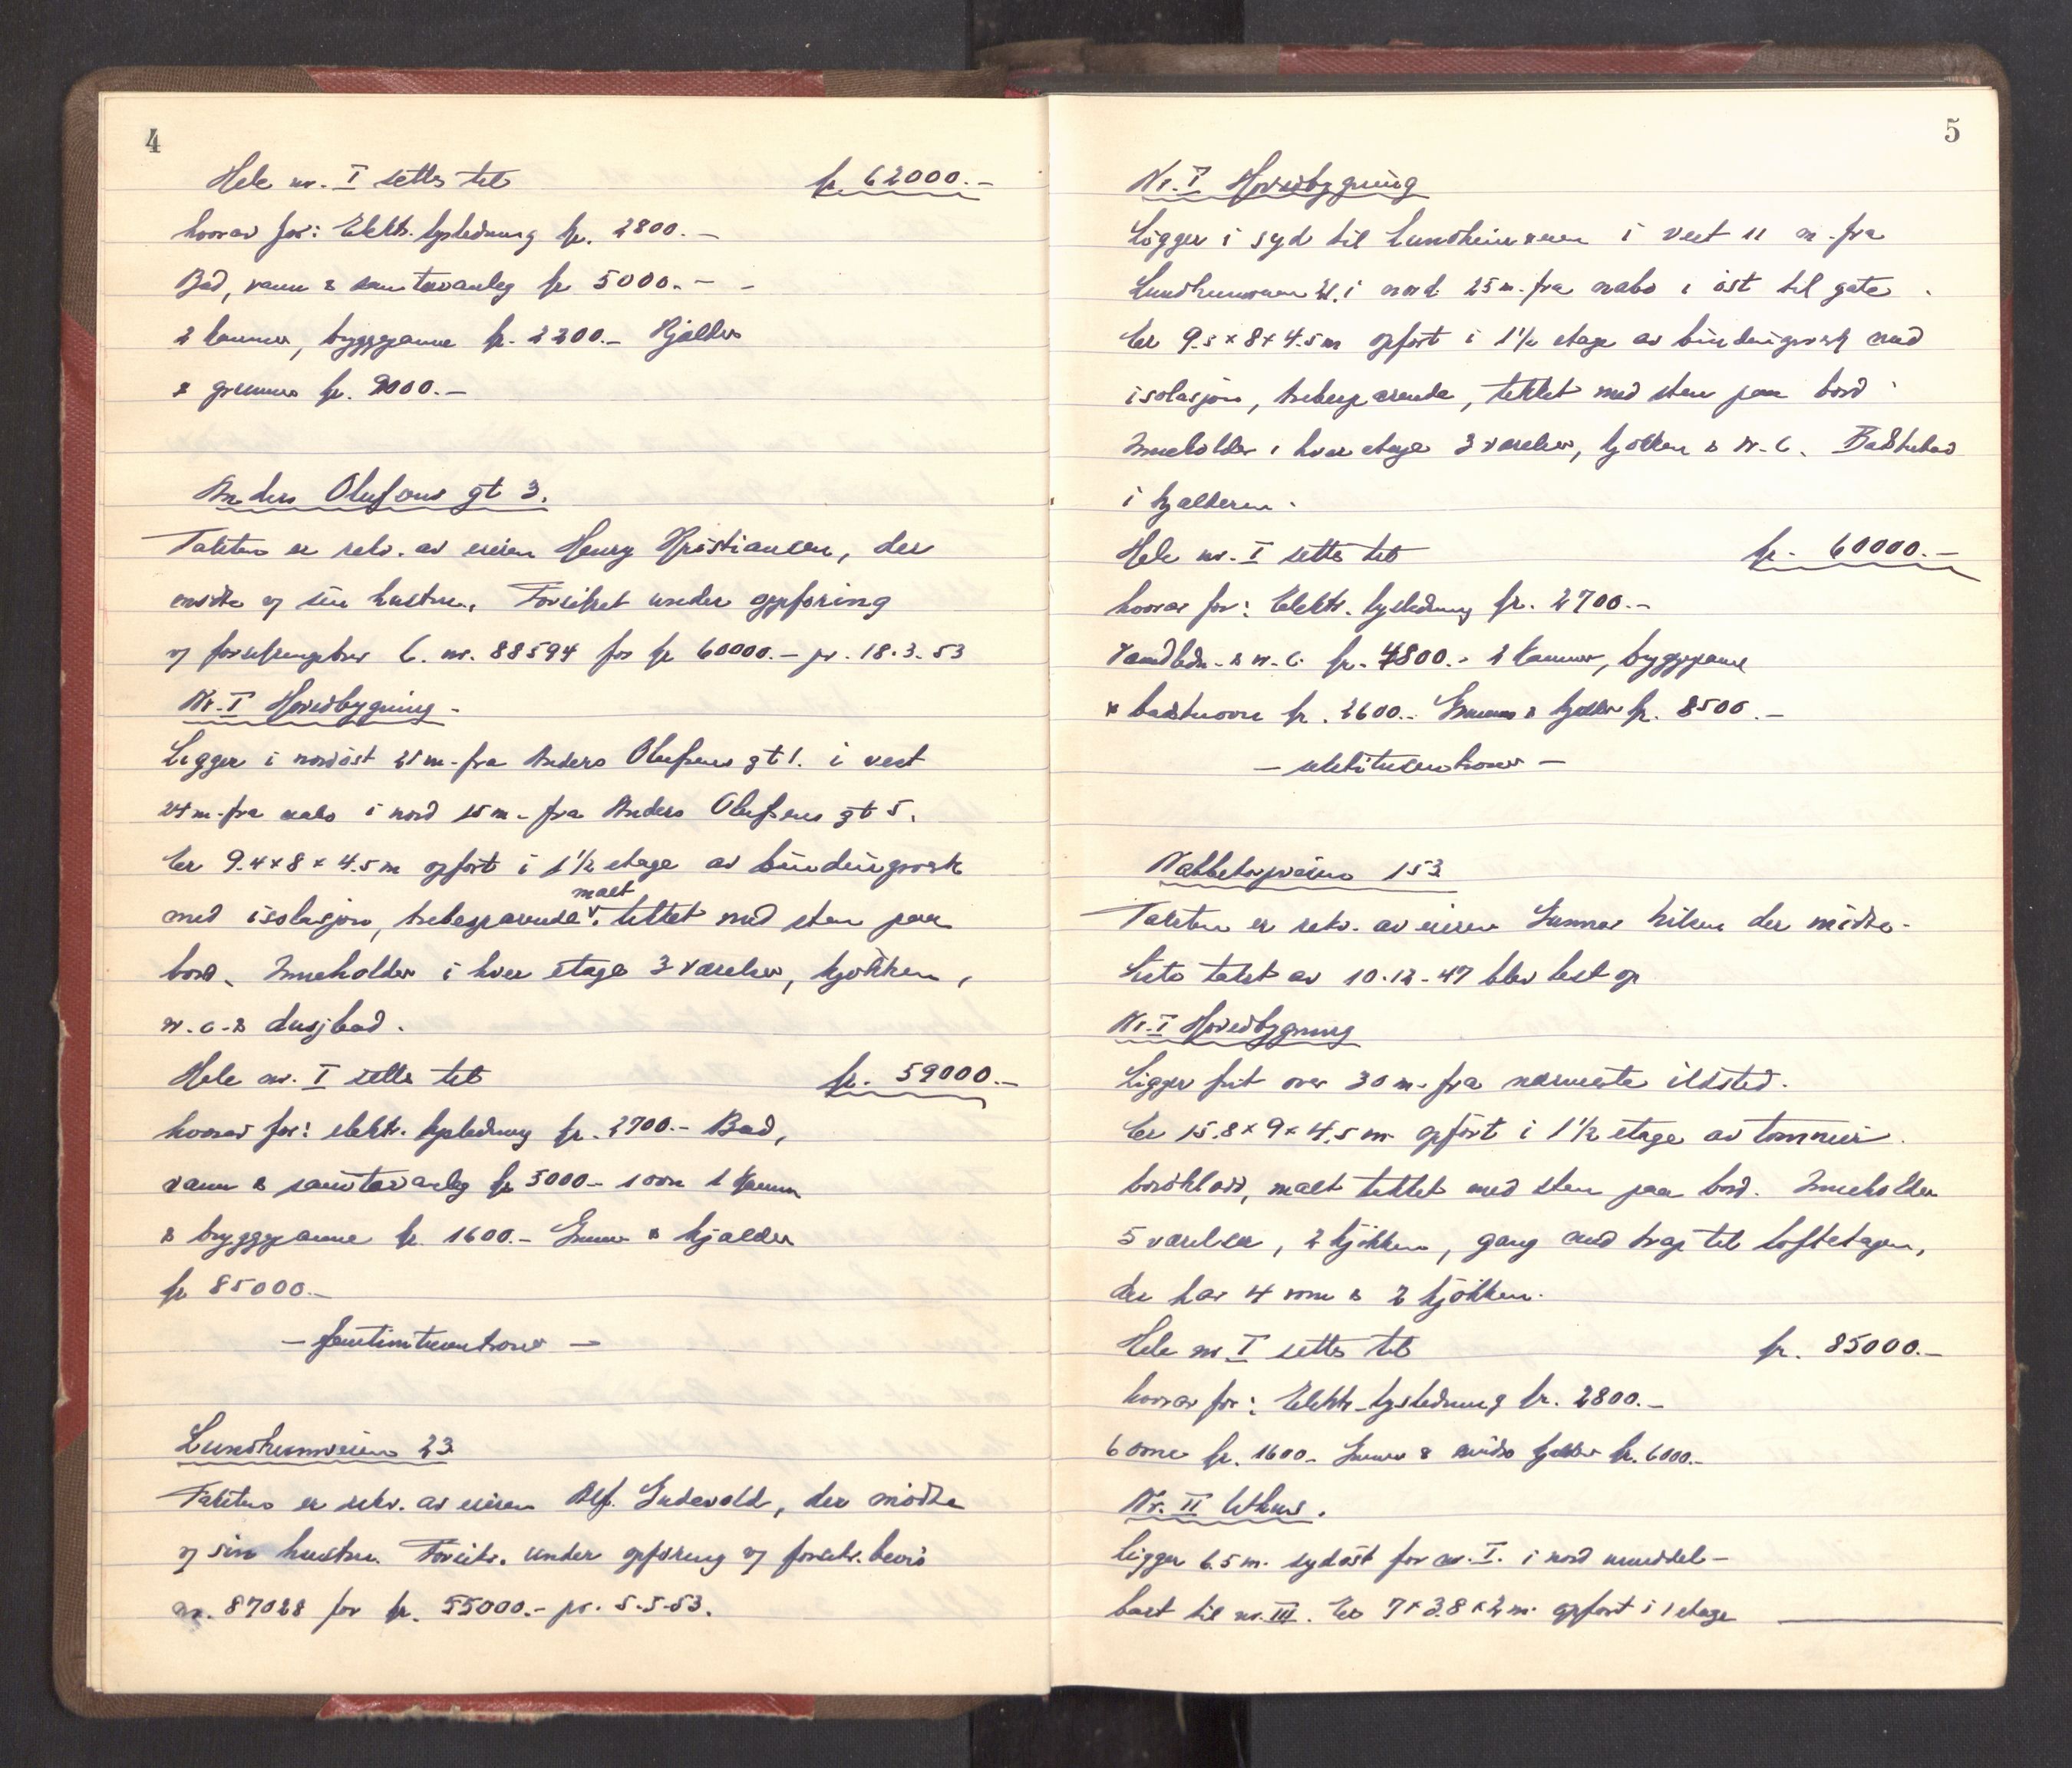 4
Hele nr. I settes til kr 62000.-
hvorav for: Elektr. lysledning kr. 2800.-
Bad, vann & sanitæranleg kr 5000.- -
2 kaminer, bryggepanne kr. 2200.- Kjelder
& grunmur kr. 9000.-
Anders Olufsens gt 3.
Taksten er rekv. av eieren Henry Kristiansen, der
mødte og sin hustru. Forsikret under opføring
og forsikringsbev. C. nr. 88594 for kr 60000.- pr. 18.3.53
Nr. I Hovedbygning.
Ligger i nordøst 21 m. fra Anders Olufsens gt 1. i vest
24 m. fra nabo i nord 15 m. fra Anders Olufsens gt 5.
Er 9.4 x 8 x 4.5 m opført i 1 1/2 etage av bindingsverk
malt
med isolasjon, trebesparende. tekket med sten paa
bord. Inneholder i hver etage 3 værelser, kjøkken,
w.c. & dusjbad.
Hele nr. I settes til kr. 59000.-
hvorav for: elektr. lysledning kr. 2700.- Bad,
vann & sanitæranleg kr 5000.- 1 ovn 1 kamin
& bryggepanne kr. 1600.- Grunm & kjælder
kr 85000.-
- femtinitusenkroner -
Lundheimveien 23
Taksten er rekv. av eieren Alf. Gudevold, der mødte
og sin hustru. Forsikr. under opføring og forsikr. bevis
nr. 87028 for kr. 55000.- pr. 5.5.53.
5
Nr. I Hovedbygning
Ligger i syd til Lundheimveien i vest 11 m. fra
Lundheimveien 21. i nord 25 m. fra nabo i øst til gate.
Er 9.5 x 8 x 4.5 m opført i 1 1/2 etage av bindingsverk med
isolasjon, trebesparende, tekket med sten paa bord.
Inneholder i hver etage 3 værelser, kjøkken & W.C. Badstubad
i kjælderen.
Hele nr. I settes til kr. 60000.-
hvorav for: Elektr. lysledning kr. 2700.-
Vandledn. & w.c. kr. 4800.- 2 kaminer, bryggepanne
& badstuovn kr. 2600.- Grunmur & kjelder kr. 8500.-
- sekstitusenkroner -
Nabbetorpveien 153
Taksten er rekv. av eieren Gunnar Nilsen der mødte.
Siste takst av 10.12.-47 blev lest op
Nr. I Hovedbygning
Ligger frit over 30 m. fra nærmeste ildsted.
Er 15.8 x 9 x 4.5 m. opført i 1 1/2 etage av tømmer.
bordklædd, malt tekket med sten paa bord. Inneholder
5 værelser, 2 kjøkken, gang med trap til loftetagen,
der har 4 rom & 2 kjøkken.
Hele nr I settes til kr. 85000.-
hvorav for: Elektr. lysledning kr. 2800.-
6 ovne kr. 1600.- Grunmur & kjelder kr. 6000.-
Nr. II Uthus.
Ligger 6.5 m. sydøst for nr. I. i nord umiddel-
bart til nr. III. Er 7 x 3.8 x 2 m. opført i 1 etage